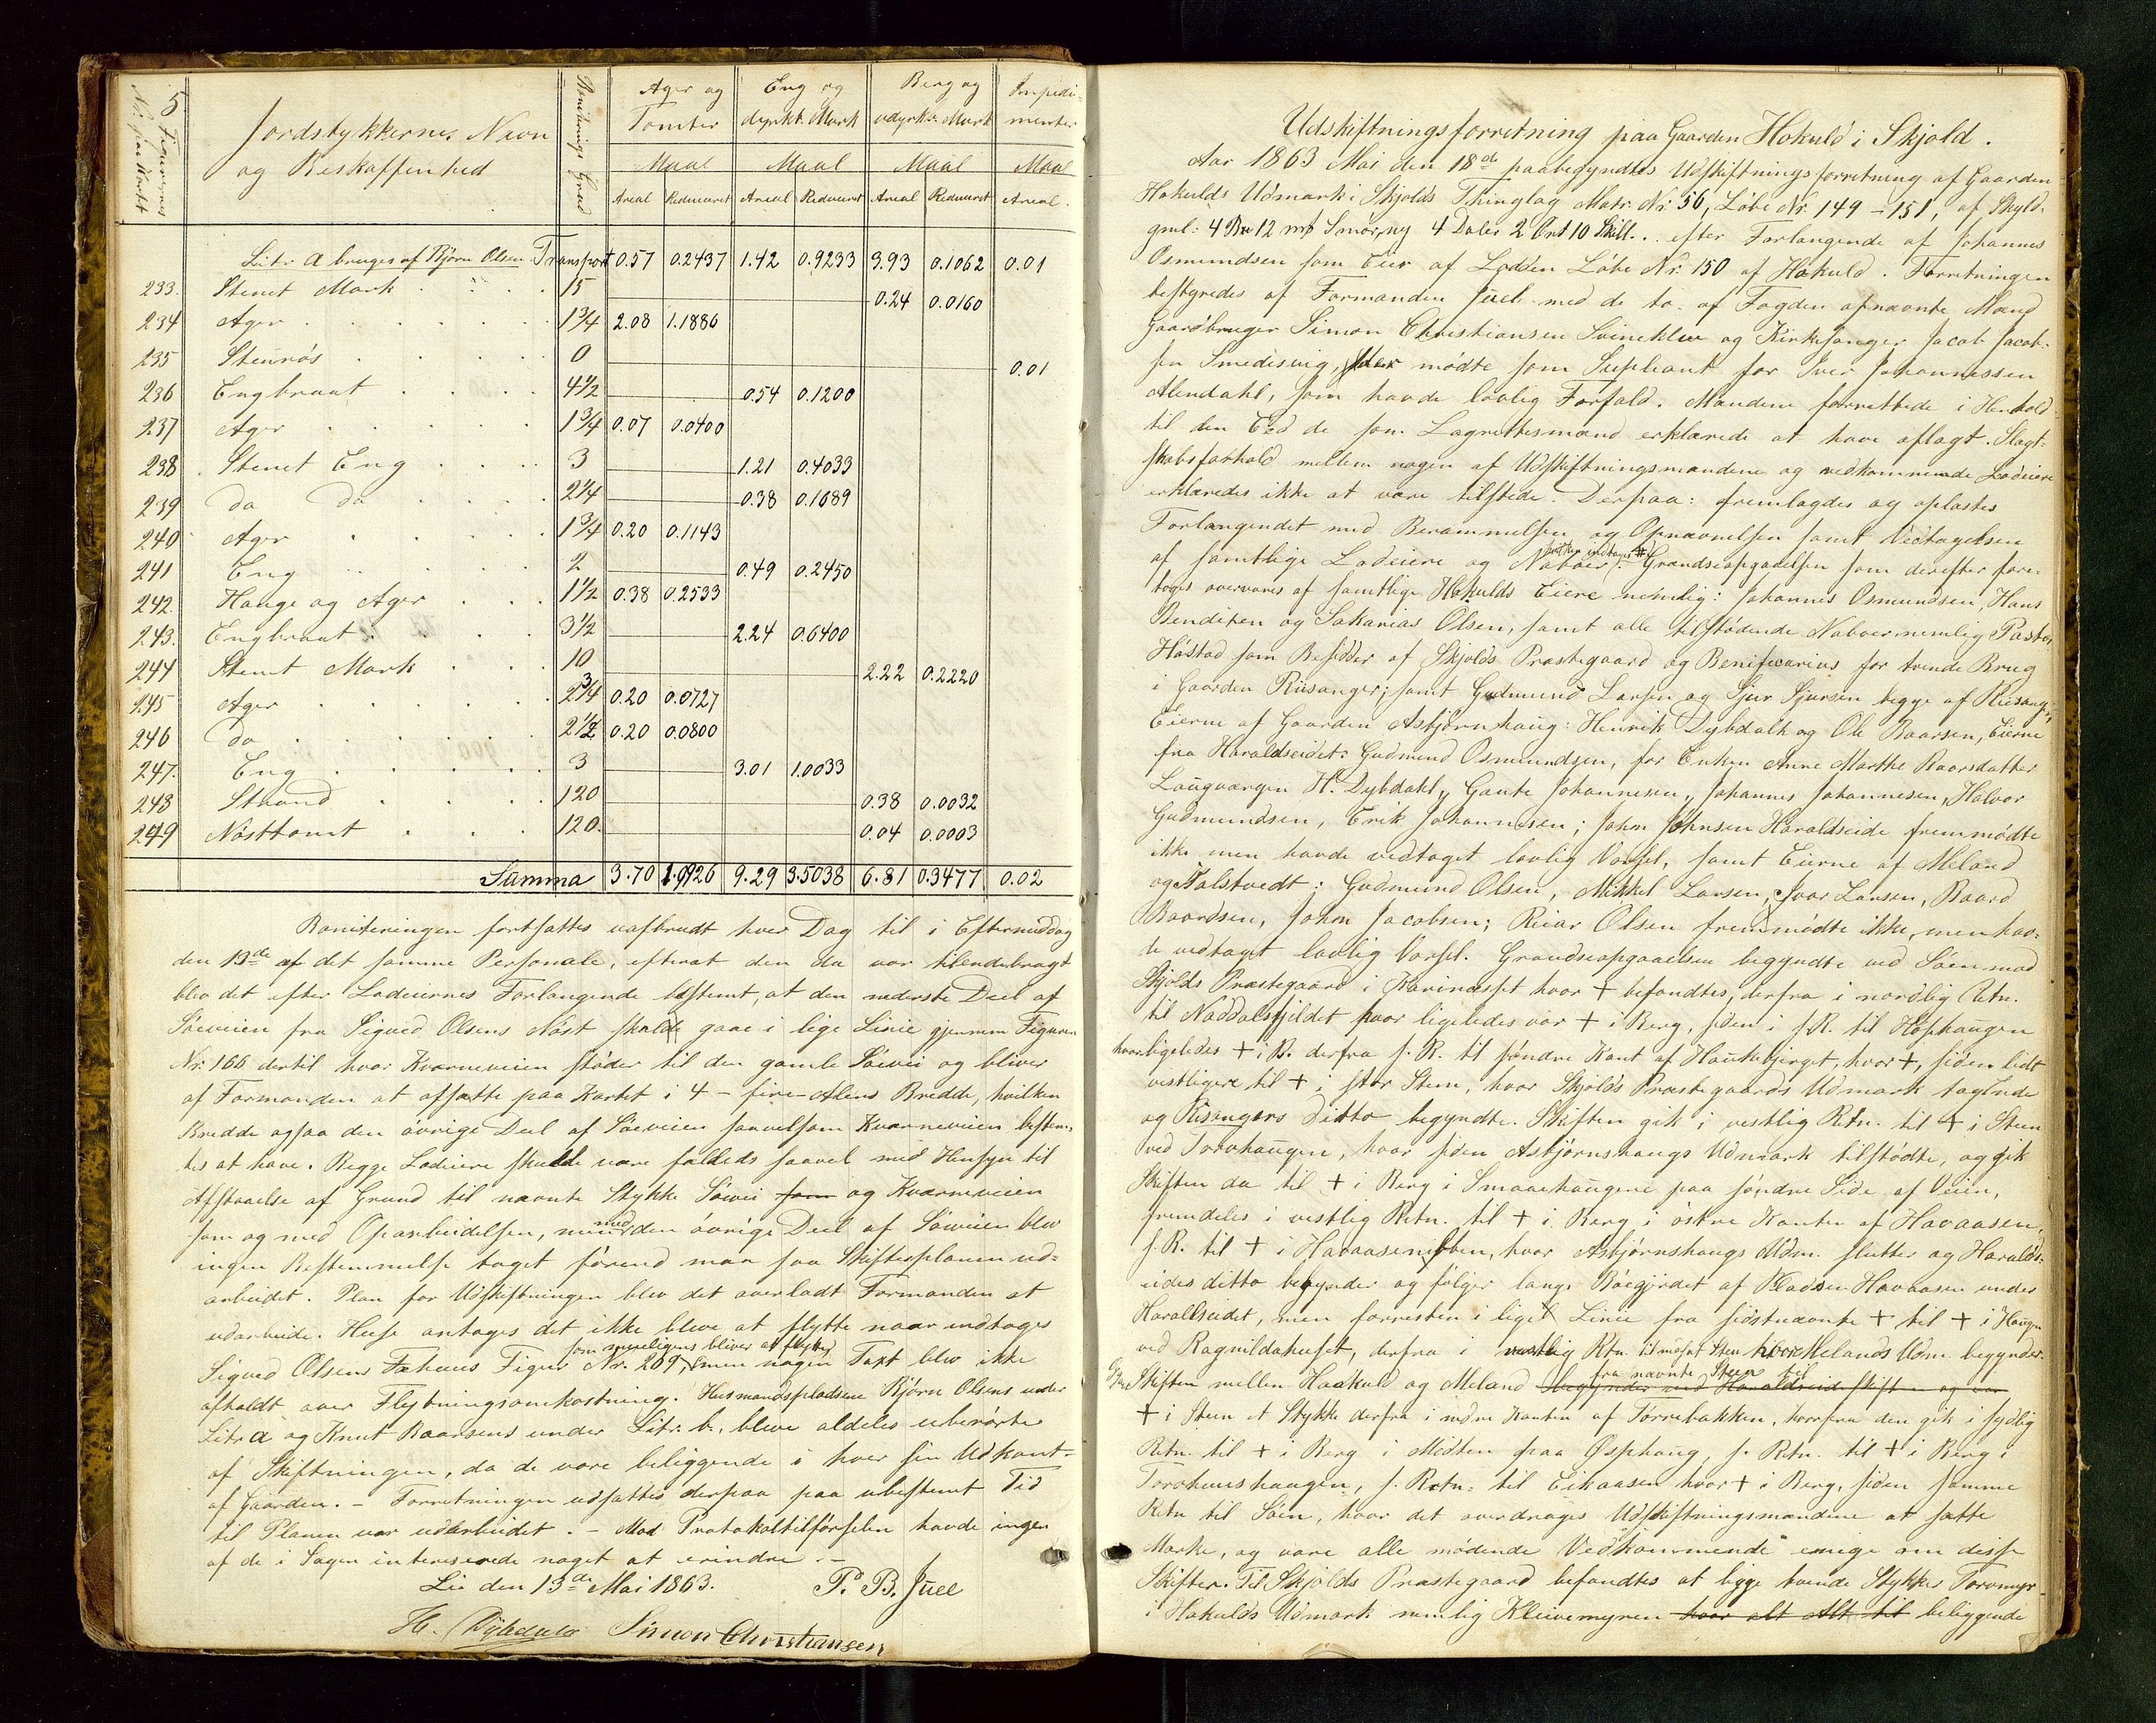 5
Figurernes Nr. paa Kartet
Jordstykkernes Navn og Beskaffenhed
Boniterings Grad
Ager og Tomter
Eng og dyrkb. Mark
Berg og udyrkb. Mark
Impedimenter
Maal Maal Maal Maal
Areal Reduceret Areal Reduceret Areal Reduceret Areal
Litr. a bruges af Bjørn Olsen Transport 0.57 0.2437 1.42 0.9233 3.93 0.1062 0.01
233. Stenet Mark 15 0.24 0.0160
234 Ager 1¾ 2.08 1.1886
235 Stenrøs 0 0.01
236 Engbraat 4½ 0.54 0.1200
237 Ager 1¾ 0.07 0.0400
238. Stenet Eng 3 1.21 0.4033
239 do do 2¼ 0.38 0.1689
240 Ager 1¾ 0.20 0.1143
241 Eng 2 0.49 0.2450
242. Hauge og Ager 1½ 0.38 0.2533
243. Engbraat 3½ 2.24 0.6400
244 Stenet Mark 10 2.22 0.2220
245 Ager 2¾ 0.20 0.0727
246 do 2½ 0.20 0.0800
247. Eng 3 3.01 1.0033
248 Strand 120 0.38 0.0032
249 Nøsttomt 120. 0.04 0.0003
Summa 3.70 1.9926 9.29 3.5038 6.81 0.3477 0.02
Boniteringen fortsattes uafbrudt hver Dag til i Eftermiddag
den 13de af det samme Personale, efterat den da var tilendebragt
blev det efter Lodeiernes Forlangende bestemt, at den nederste Deel af
Søeveien fra Sigved Olsens Nøst skulde gaae i lige Linie gjennem Figuren
Nr. 166 dertil hvor Kværneveien støder til den gamle Søevei og bliver
af Formanden at afsætte paa Kartet i 4 – fire – Alens Bredde, hvilken
Bredde ogsaa den øvrige Deel af Søeveien saavelsom Kværneveien bestem-
tes at have. Begge Lodeiere skulde være fælleds saavel med Hensyn til
Afstaaelse af Grund til nævnte Stykke Søevei som og Kværneveien
som og med Oparbeidelsen, men med den øvrige Deel af Søeveien blev
ingen Bestemmelse taget førend man saa Skifteplanen ud-
arbeidet. Plan for Udskiftningen blev det overladt Formanden at
udarbeide. Huse antages det ikke bleve at flytte naar undtages
Sigved Olsens Fæhuus Figur Nr. 209, som mueligens bliver at flytte, men nogen Taxt blev ikke
afholdt over Flytningsomkostning. Husmandspladsene Bjørn Olsens under
Litr. a og Knut Baarsens under Litr. b., bleve aldeles uberørte
af Skiftningen, da de vare beliggende i hver sin Udkant
af Gaarden. – Forretningen udsattes derpaa paa ubestemt Tid
til Planen var udarbeidet. – Mod Protokoltilførselen havde ingen
af de i Sagen interesserede noget at erindre. –
Lie den 13de Mai 1863. P. B. Juel
H. Dybdahl Simon Christiansen
Udskiftningsforretning paa Gaarden Hokuld i Skjold.
Aar 1863 Mai den 18de paabegyndtes Udskiftningsforretning af Gaarden
Hokulds Udmark i Skjolds Thinglag Matr. Nr. 56, Løbe Nr. 149 – 151, af Skyld
gml: 4 12 Smør, ny 4 Daler 2 Ort 10 Skill... efter Forlangende af Johannes
Osmundsen som Eier af Lodden Løbe Nr. 150 af Hokuld. Forretningen
bestyredes af Formanden Juel med de to af Fogden opnævnte Mænd
Gaardbruger Simon Christiansen Svineklev og Kirkesanger Jacob Jacob-
sen Smedsvig, der mødte som Supleant for Iver Johannessen
Alendahl, som havde lovlig Forfald. Mændene forrettede i Henhold
til den Eed de som Lagrettesmænd erklærede at have aflagt. Slægt-
skabsforhold mellem nogen af Udskiftningsmændene og vedkommende Lodeiere
erklæredes ikke at være tilstede. Derpaa: fremlagdes og oplæstes
Forlangendet med Berammelsen og Opnævnelsen samt Vedtagelsen
af samtlige Lodeiere og Naboer. Grændseopgaaelsen som derefter fore-
toges overværes af samtlige Hokulds Eiere nemlig: Johannes Osmundsen, Hans
Bendiken og Sakarias Olsen, samt alle tilstødende Naboer nemlig Pastor
Høstad som Besidder af Skjolds Præstegaard og Beneficiarius for tvende Brug
i Gaarden Riisanger; samt Gudmund Larsen og Sjur Sjursen begge af Riisanger,
Eierne af Gaarden Asbjørnhaug: Henrik Dybdahl og Ole Baarsen, Eierne
fra Haraldseidet: Gudmund Osmundsen, for Enken Anne Marthe Baarsdatter
Laugværgen H. Dybdahl, Gaute Johannesen, Johannes Johannesen, Halvor
Gudmundsen, Erik Johannesen; John Johnsen Haraldseide fremmødte
ikke men havde vedtaget lovlig Varsel, samt Eierne af Meland
og Tolstvedt: Gudmund Olsen, Mikkel Larsen, Ivar Larsen, Baard
Baardsen, John Jacobsen; Reiar Olsen fremmødte ikke, men hav-
de vedtaget lovlig Varsel. Grændseopgaaelsen begyndte ved Søen mod
Skjolds Præstegaard i Karineset hvor + befandtes, derfra i nordlig Retn.
til Naddalsfjeldet hvor ligeledes var + i Berg, siden i s. R. til Høshaugen
hvor ligeledes + i B. derfra s. R. til søndre Kant af Haukebjerget, hvor +, siden lidt
vestligere til + i stor Steen, hvor Skjolds Præstegaards Udmark tog Ende
og Risangers ditto begyndte. Skiften gik i vestlig Retn. til + i Steen
ved Torvhaugen, hvor siden Asbjørnshaugs Udmark tilstødte, og gik
Skiften da til + i Berg i Smaaehaugene paa søndre Side af Veien,
fremdeles i vestlig Retn. til + i Berg i østre Kanten af Havaasen,
s. R. til + i Havaasen, hvor Asbjørnshaugs Udm. slutter og Harald-
eides ditto begynder og følger langs Bøegjerdet af Pladsen Havaasen under
Haraldseidet, men forresten i liget Linie fra sidstnævnte + til + i Haugen
ved Ragnildahuset, derfra i vestlig Retn. til Steen hvor Melands Udm. begynder.
Skiften mellem Haakuld og Meland begynder ved Haraldseideskiften og var fra nævnte Steen til
+ i Steen et Stykke derfra i nedre Kanten af Tørrebakken, hvorfra den gik i sydlig
Retn. til + i Berg i Midten paa Øsphaug, s. Retn. til + i Berg i
Torvhuushaugen, s. Retn. til Eikaasen hvor + i Berg, siden samme
Retn til Søen, hvor det overdroges Udskiftningsmændene at sætte
Mærke, og vare alle mødende Vedkommende enige om disse
Skifter. Til Skjolds Præstegaard befandtes at ligge tvende Stykker Torvmyr
i Hokulds Udmark nemlig Kleivemyren hvor alt Alt til beliggende